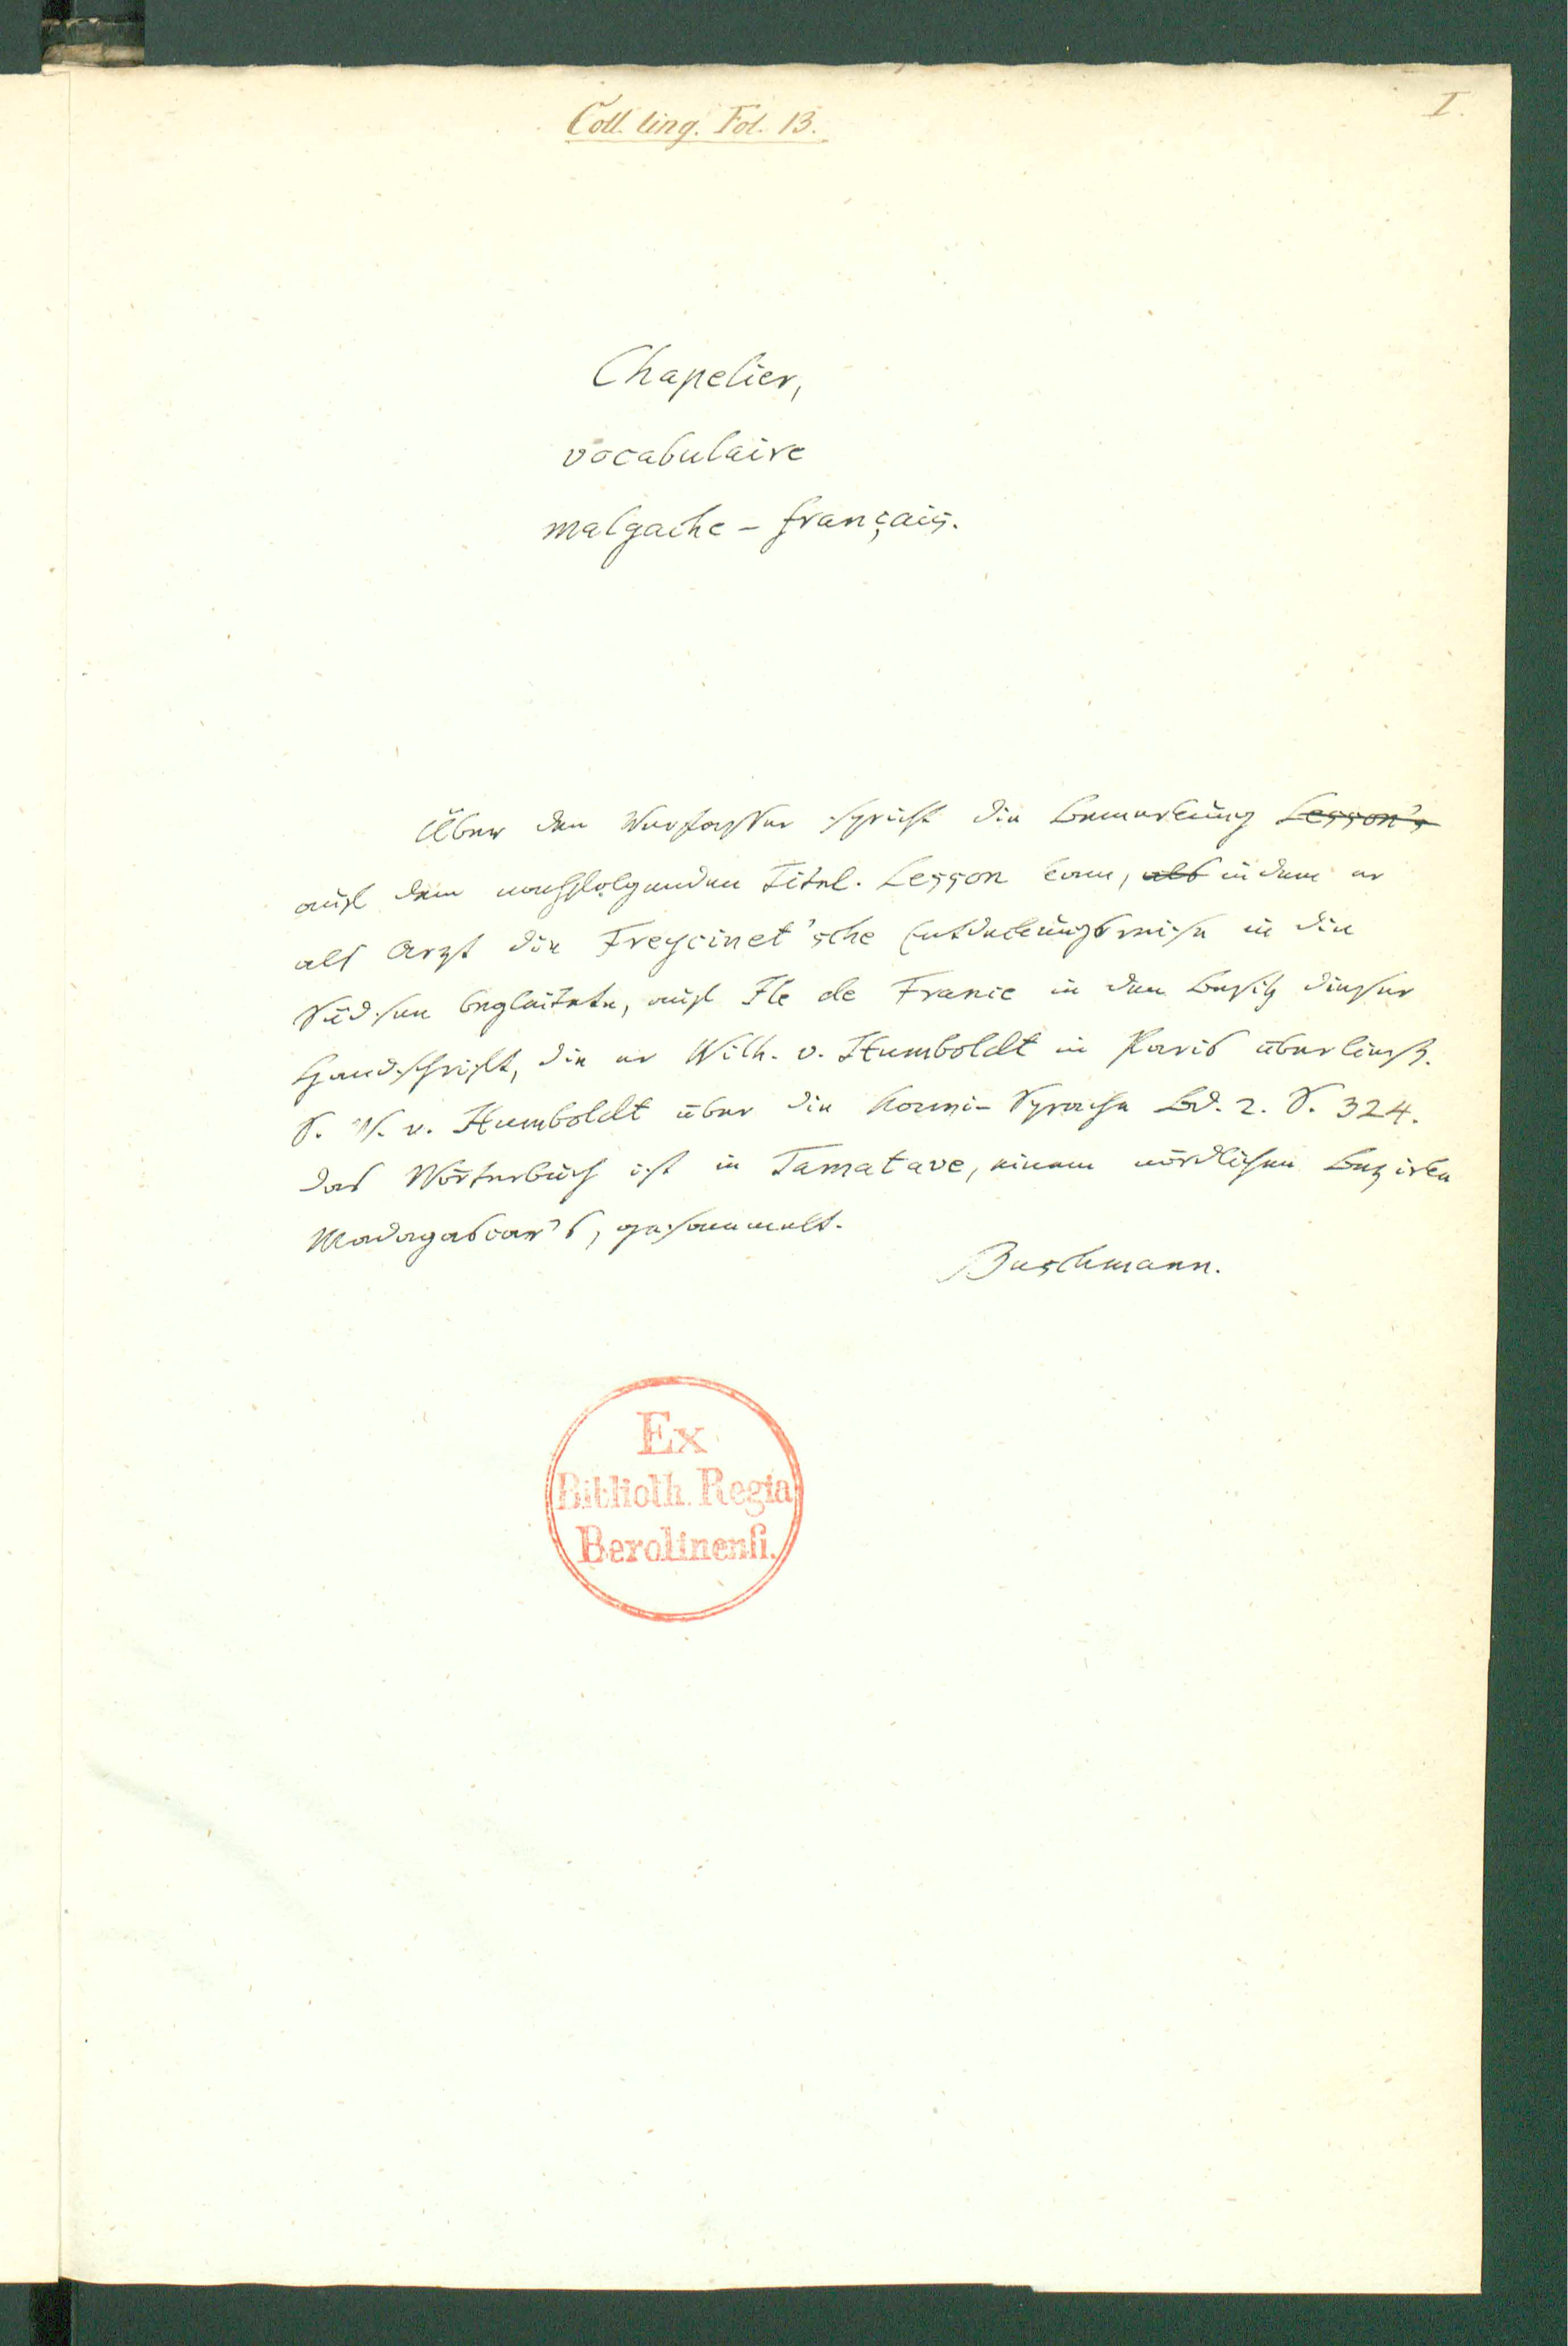 Coll. ling. Fol. 13.
I.
Chapelier,
vocabulaire
malgache - français.
Über den Verfasser spricht die Bemerkung Lesson's
auf dem nachfolgenden Titel. Lesson kam, als indem er
als Arzt die Freycinet'sche Entdeckungsreise in die
Südsee begleitete, auf Ile de France in den Besitz dieser
Handschrift, die er Wilh. v. Humboldt in Paris überließ.
S. W. v. Humboldt über die Kawi-Sprache Bd. 2. S. 324.
Das Wörterbuch ist in Tamatave, einem nördlichen Bezirke
Madagascar's, gesammelt.
Buschmann.
Ex
Biblioth. Regia
Berolinenſi.